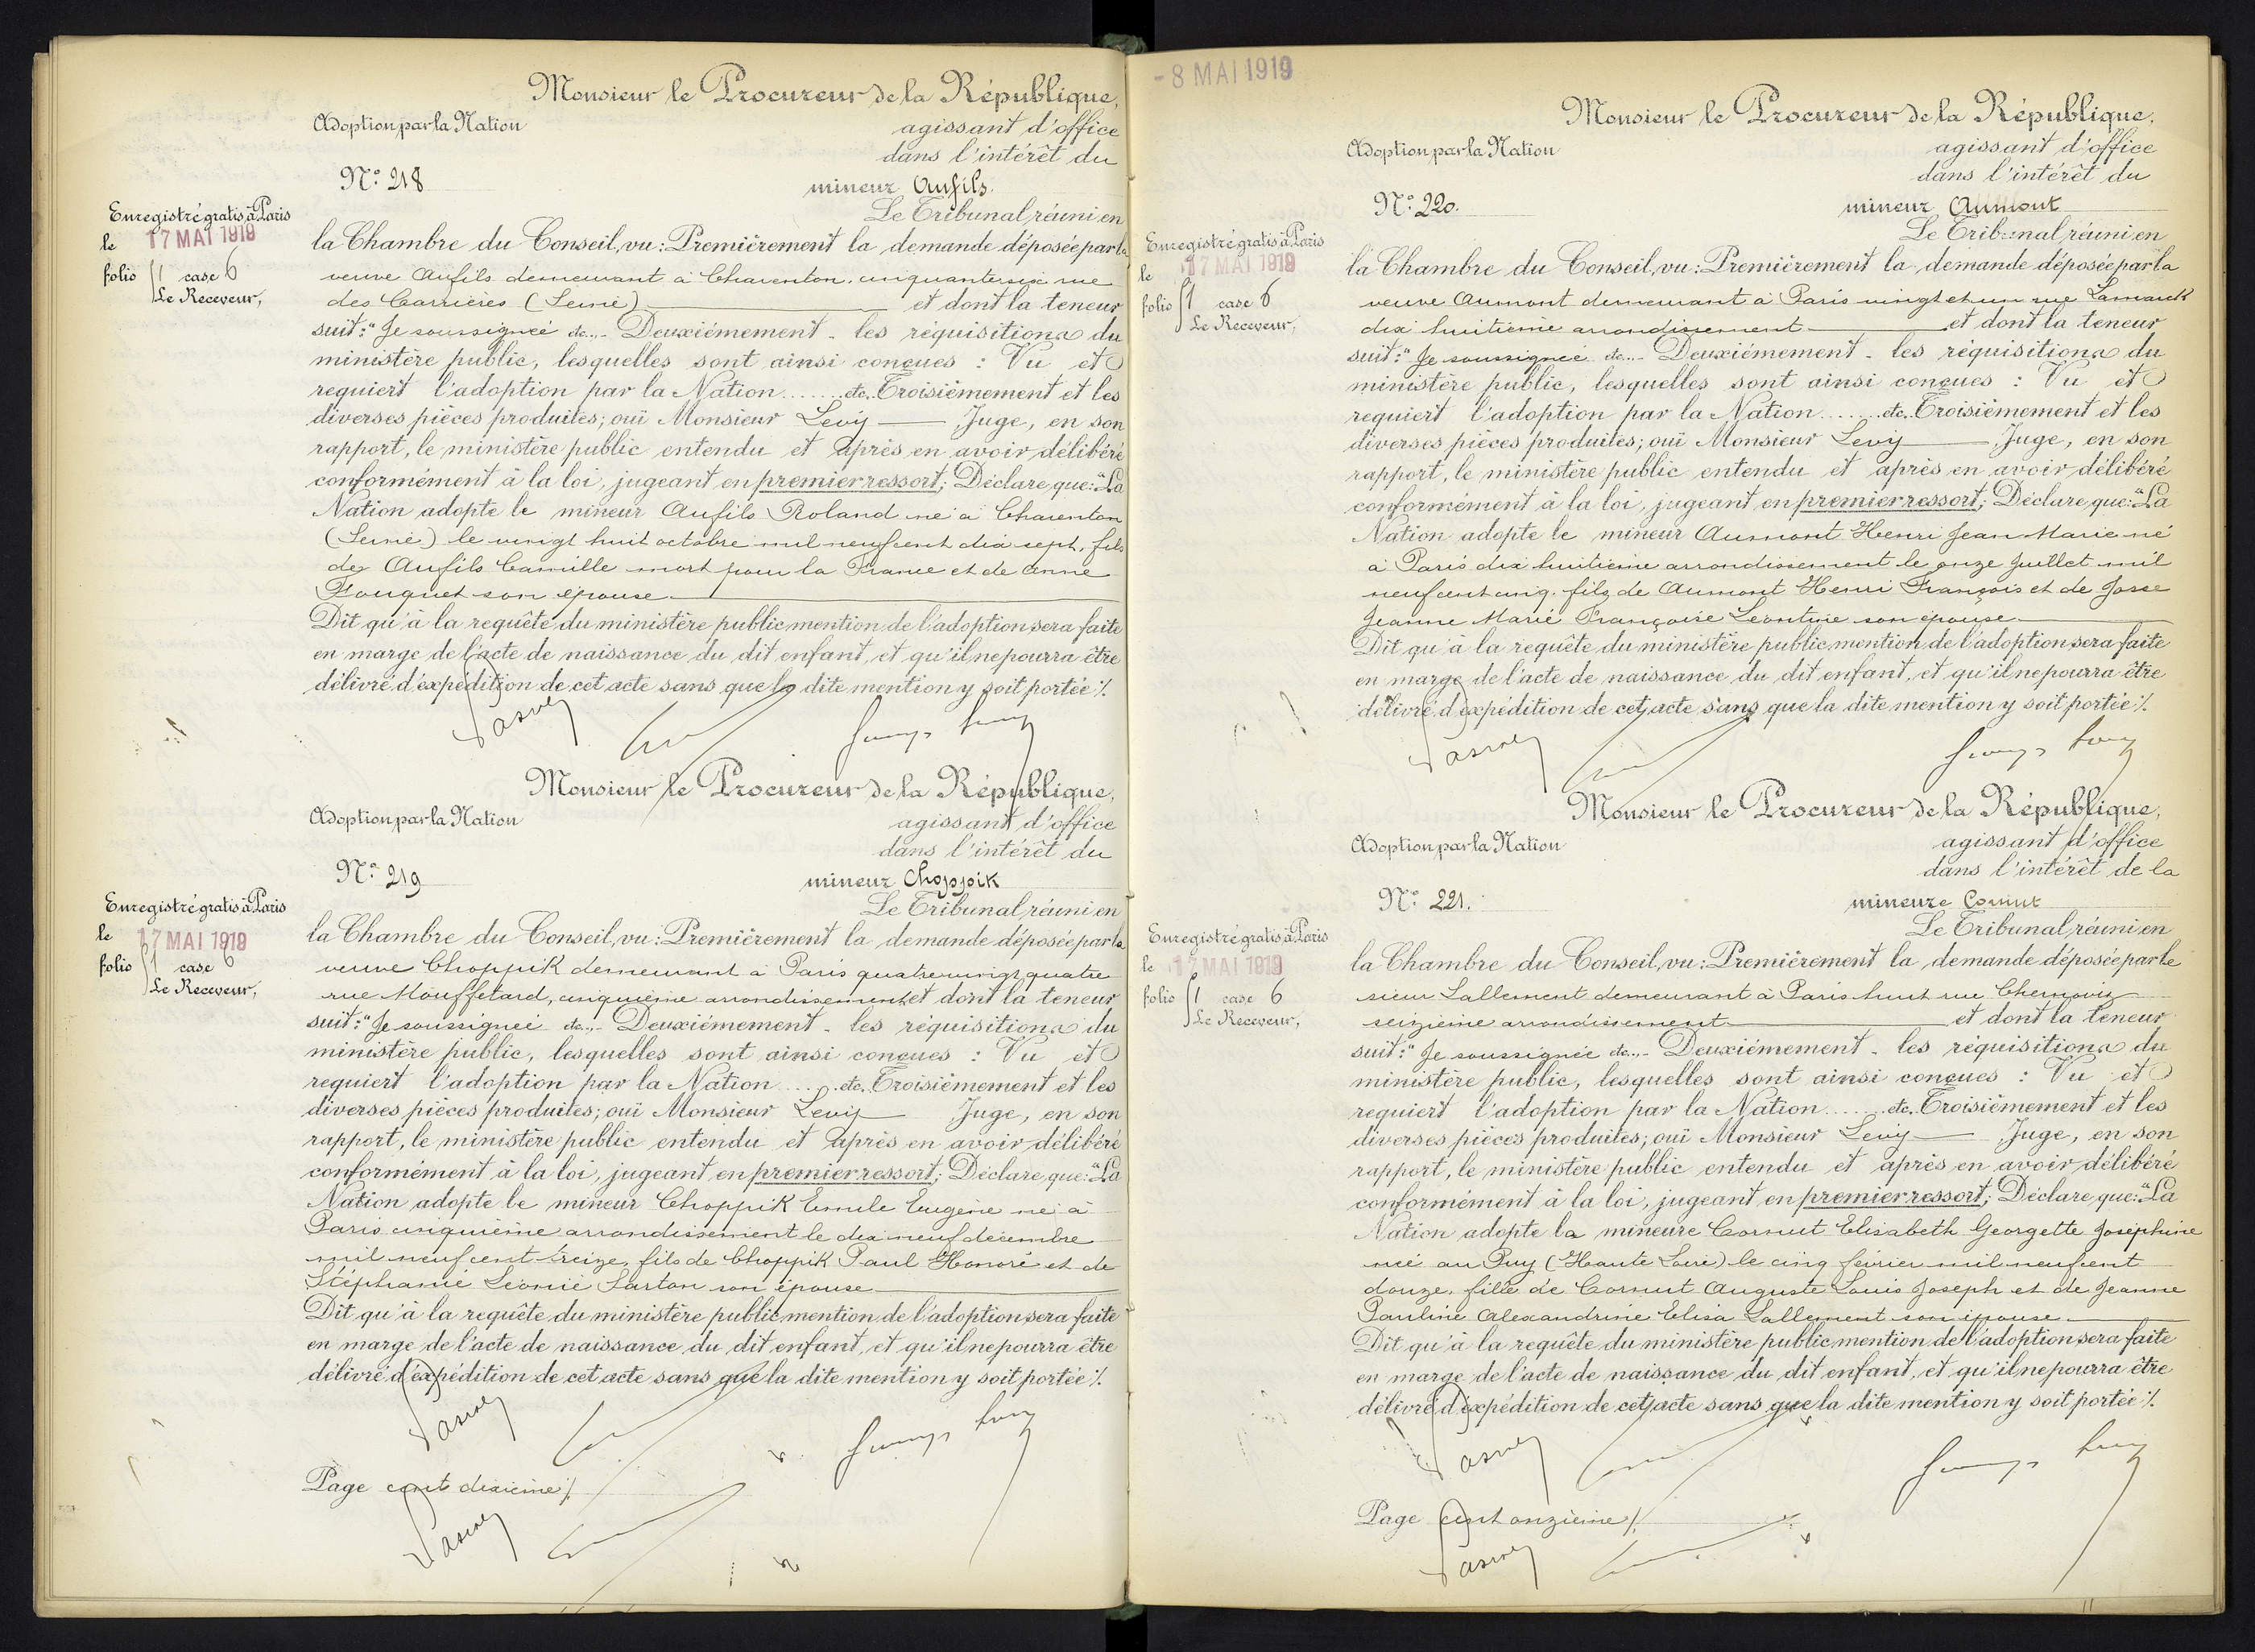 Monsieur le Procureur de la République,
Adoption par la Nation
agissant d'office
dans l'intérêt du
N° 218
mineur Aufils.
Enregistré gratis à Paris
le 17 MAI 1919
folio 1 case 6
Le Receveur,
Le Tribunal réuni en
la Chambre du Conseil, vu : Premièrement la demande déposée par la
veuve Aufils demeurant à Charenton, cinquante six rue
des Carrières (Seine) et dont la teneur
suit : "Je soussignée etc... Deuxièmement - les réquisitions du
ministère public, lesquelles sont ainsi conçues : Vu et
requiert l'adoption par la Nation ...... etc. Troisièmement et les
diverses pièces produites; ouï Monsieur Levy Juge, en son
rapport, le ministère public entendu et après en avoir délibéré
conformément à la loi, jugeant en premier ressort; Déclare que: "La
Nation adopte le mineur Aufils Roland né à Charenton
(Seine) le vingt huit octobre mil neuf cent dix sept, fils
de Aufils Camille mort pour la France et de Anne
Fouquet son épouse.
Dit qu'à la requête du ministère public mention de l'adoption sera faite
en marge de l'acte de naissance du dit enfant, et qu'il ne pourra être
délivré d'expédition de cet acte sans que la dite mention y soit portée ./.
Monsieur le Procureur de la République,
Adoption par la Nation
agissant d'office
dans l'intérêt du
N° 219
mineur Choppik
Enregistré gratis à Paris
le 17 MAI 1919
folio 1 case 6
Le Receveur,
Le Tribunal réuni en
la Chambre du Conseil, vu : Premièrement la demande déposée par la
veuve Choppik demeurant à Paris quatre vingt quatre
rue Mouffetard, cinquième arrondissement et dont la teneur
suit : "Je soussignée etc... Deuxièmement - les réquisitions du
ministère public, lesquelles sont ainsi conçues : Vu et
requiert l'adoption par la Nation ...... etc. Troisièmement et les
diverses pièces produites; ouï Monsieur Levy Juge, en son
rapport, le ministère public entendu et après en avoir délibéré
conformément à la loi, jugeant en premier ressort; Déclare que: "La
Nation adopte le mineur Choppik Emile Eugène né à
Paris cinquième arrondissement le dix neuf décembre
mil neuf cent treize, fils de Choppik Paul Honoré et de
Stéphanie Léonie Sarton son épouse
Dit qu'à la requête du ministère public mention de l'adoption sera faite
en marge de l'acte de naissance du dit enfant, et qu'il ne pourra être
délivré d'expédition de cet acte sans que la dite mention y soit portée ./.
Page cent dixième ./.
- 8 MAI 1919
Monsieur le Procureur de la République,
Adoption par la Nation
agissant d'office
dans l'intérêt du
N° 220.
mineur Aumont
Enregistré gratis à Paris
le 17 MAI 1919
folio 1 case 6
Le Receveur,
Le Tribunal réuni en
la Chambre du Conseil, vu : Premièrement la demande déposée par la
veuve Aumont demeurant à Paris vingt et un rue Lamarck
dix huitième arrondissement et dont la teneur
suit : "Je soussignée etc... Deuxièmement - les réquisitions du
ministère public, lesquelles sont ainsi conçues : Vu et
requiert l'adoption par la Nation ...... etc. Troisièmement et les
diverses pièces produites; ouï Monsieur Levy Juge, en son
rapport, le ministère public entendu et après en avoir délibéré
conformément à la loi, jugeant en premier ressort; Déclare que: "La
Nation adopte le mineur Aumont Henri Jean Marie né
à Paris dix huitième arrondissement le onze juillet mil
neuf cent cinq. fils de Aumont Henri François et de Josse
Jeanne Marie Françoise Léontine son épouse.
Dit qu'à la requête du ministère public mention de l'adoption sera faite
en marge de l'acte de naissance du dit enfant, et qu'il ne pourra être
délivré d'expédition de cet acte sans que la dite mention y soit portée ./.
Monsieur le Procureur de la République,
Adoption par la Nation
agissant d'office
dans l'intérêt de la
N° 221.
mineure Cornut
Enregistré gratis à Paris
le 17 MAI 1919
folio 1 case 6
Le Receveur,
Le Tribunal réuni en
la Chambre du Conseil, vu : Premièrement la demande déposée par le
sieur Lallement demeurant à Paris huit rue Chernoviz
seizième arrondissement et dont la teneur
suit : "Je soussignée etc... Deuxièmement - les réquisitions du
ministère public, lesquelles sont ainsi conçues : Vu et
requiert l'adoption par la Nation ...... etc. Troisièmement et les
diverses pièces produites; ouï Monsieur Levy Juge, en son
rapport, le ministère public entendu et après en avoir délibéré
conformément à la loi, jugeant en premier ressort; Déclare que: "La
Nation adopte la mineure Cornut Elisabeth Georgette Joséphine
née au Puy (Haute Loire) le cinq février mil neuf cent
douze, fille de Cornut Auguste Louis Joseph et de Jeanne
Pauline Alexandrine Elisa Lallement son épouse.
Dit qu'à la requête du ministère public mention de l'adoption sera faite
en marge de l'acte de naissance du dit enfant, et qu'il ne pourra être
délivré d'expédition de cet acte sans que la dite mention y soit portée ./.
Page cent onzième ./.